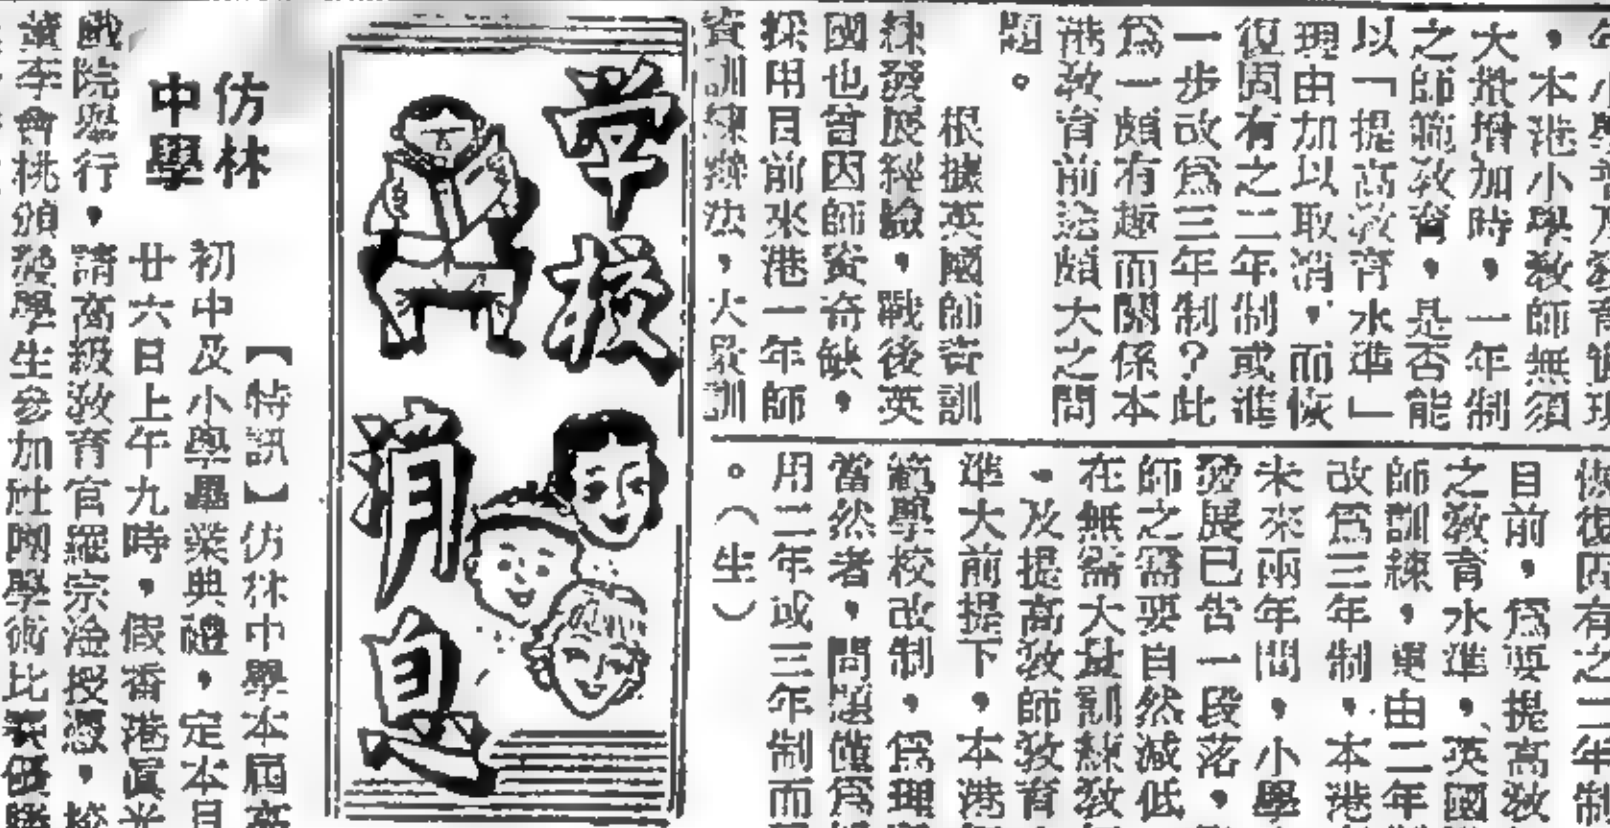 ，本港小學教師無須
大批增加時，一年制
之師範教育，是否能
以「提高教育水準」
現由加以取消，而恢
復固有之二年制或進
一步改爲三年制？此
爲一頗有趣而關係本
港教育前途頗大之問
題。
根據英國師資訓
練發展經驗，戰後英
國也曾因師資奇缺，
採用目前來港一年師
資訓練辦法，大量訓
恢復固有之二年制
目前，爲要提高教
之教育水準，英國
師訓練，由二年
改爲三年制，本港
未來兩年間，小學
發展已告一段落，
師之需要自然減低
在無需大量訓練教
，及提高教師教育
準大前提下，本港
範學校改制，爲理
當然者，問題僅爲
用二年或三年制而
。（生）
学校
消息
仿林
中學
【特訊】仿林中學本屆高
初中及小學畢業典禮，定本月
廿六日上午九時，假香港真光
戲院舉行，請高級教育官羅宗淦授憑，
李會桃頒發學生參加社團學術比賽優勝